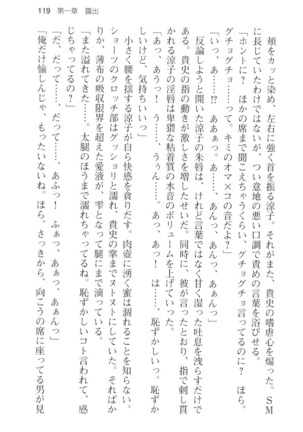 119　第一章　露出
　頬をカッと染め、左右に強く首を振る涼子。それがまた、貴史の嗜虐心を煽った。ＳＭ
に長じていたわけではないが、つい意地の悪い口調で責めの言葉を浴びせる。
「ホントに？　ほかの席まで聞こえちゃうくらい、グチョグチョ言ってるのに？　ほら。
グチョグチョって……って、キミのオマ×コの音だよ？」
「いっ、あ……⁉　あぁんっ、あ……あんっ、あんっ、あっ」
　反論しようと開いた涼子の朱唇は、けれど言葉ではなく甘く湿った吐息を洩らすのみで
ある。貴史の指の動きが激しさを増したせいだ。同時に、彼が言ったとおり、指で刺し貫
かれる涼子の淫唇は卑猥な粘着質の水音のボリュームを上げていった。
「いっ、あっ、あふっ！　……う、うぅん……。あっ、あっ！　は……恥ずかしいっ。恥ずか
しいけど、気持ちいいっ」
　小さく腰を揺する涼子が自ら快感を貪りだす。肉壺に湧く蜜は涸れることを知らない。
ショーツのクロッチ部はグッショリと濡れ、貴史の掌までヌトヌトにしていた。そればか
りか、薄布の吸収限界を超えた愛液が、雫となって腿にまで滴っている。
「また溢れてきた。太腿のほうまで濡れちゃってるね。恥ずかしいコト言われて、感
「だ、だって……だって……、あふっ！　ふぅっ、あぁっ、あんっ」
「俺だけ愉しんじゃ、もったいないね。ほら。さっきから、向こうの席に座ってる男が見